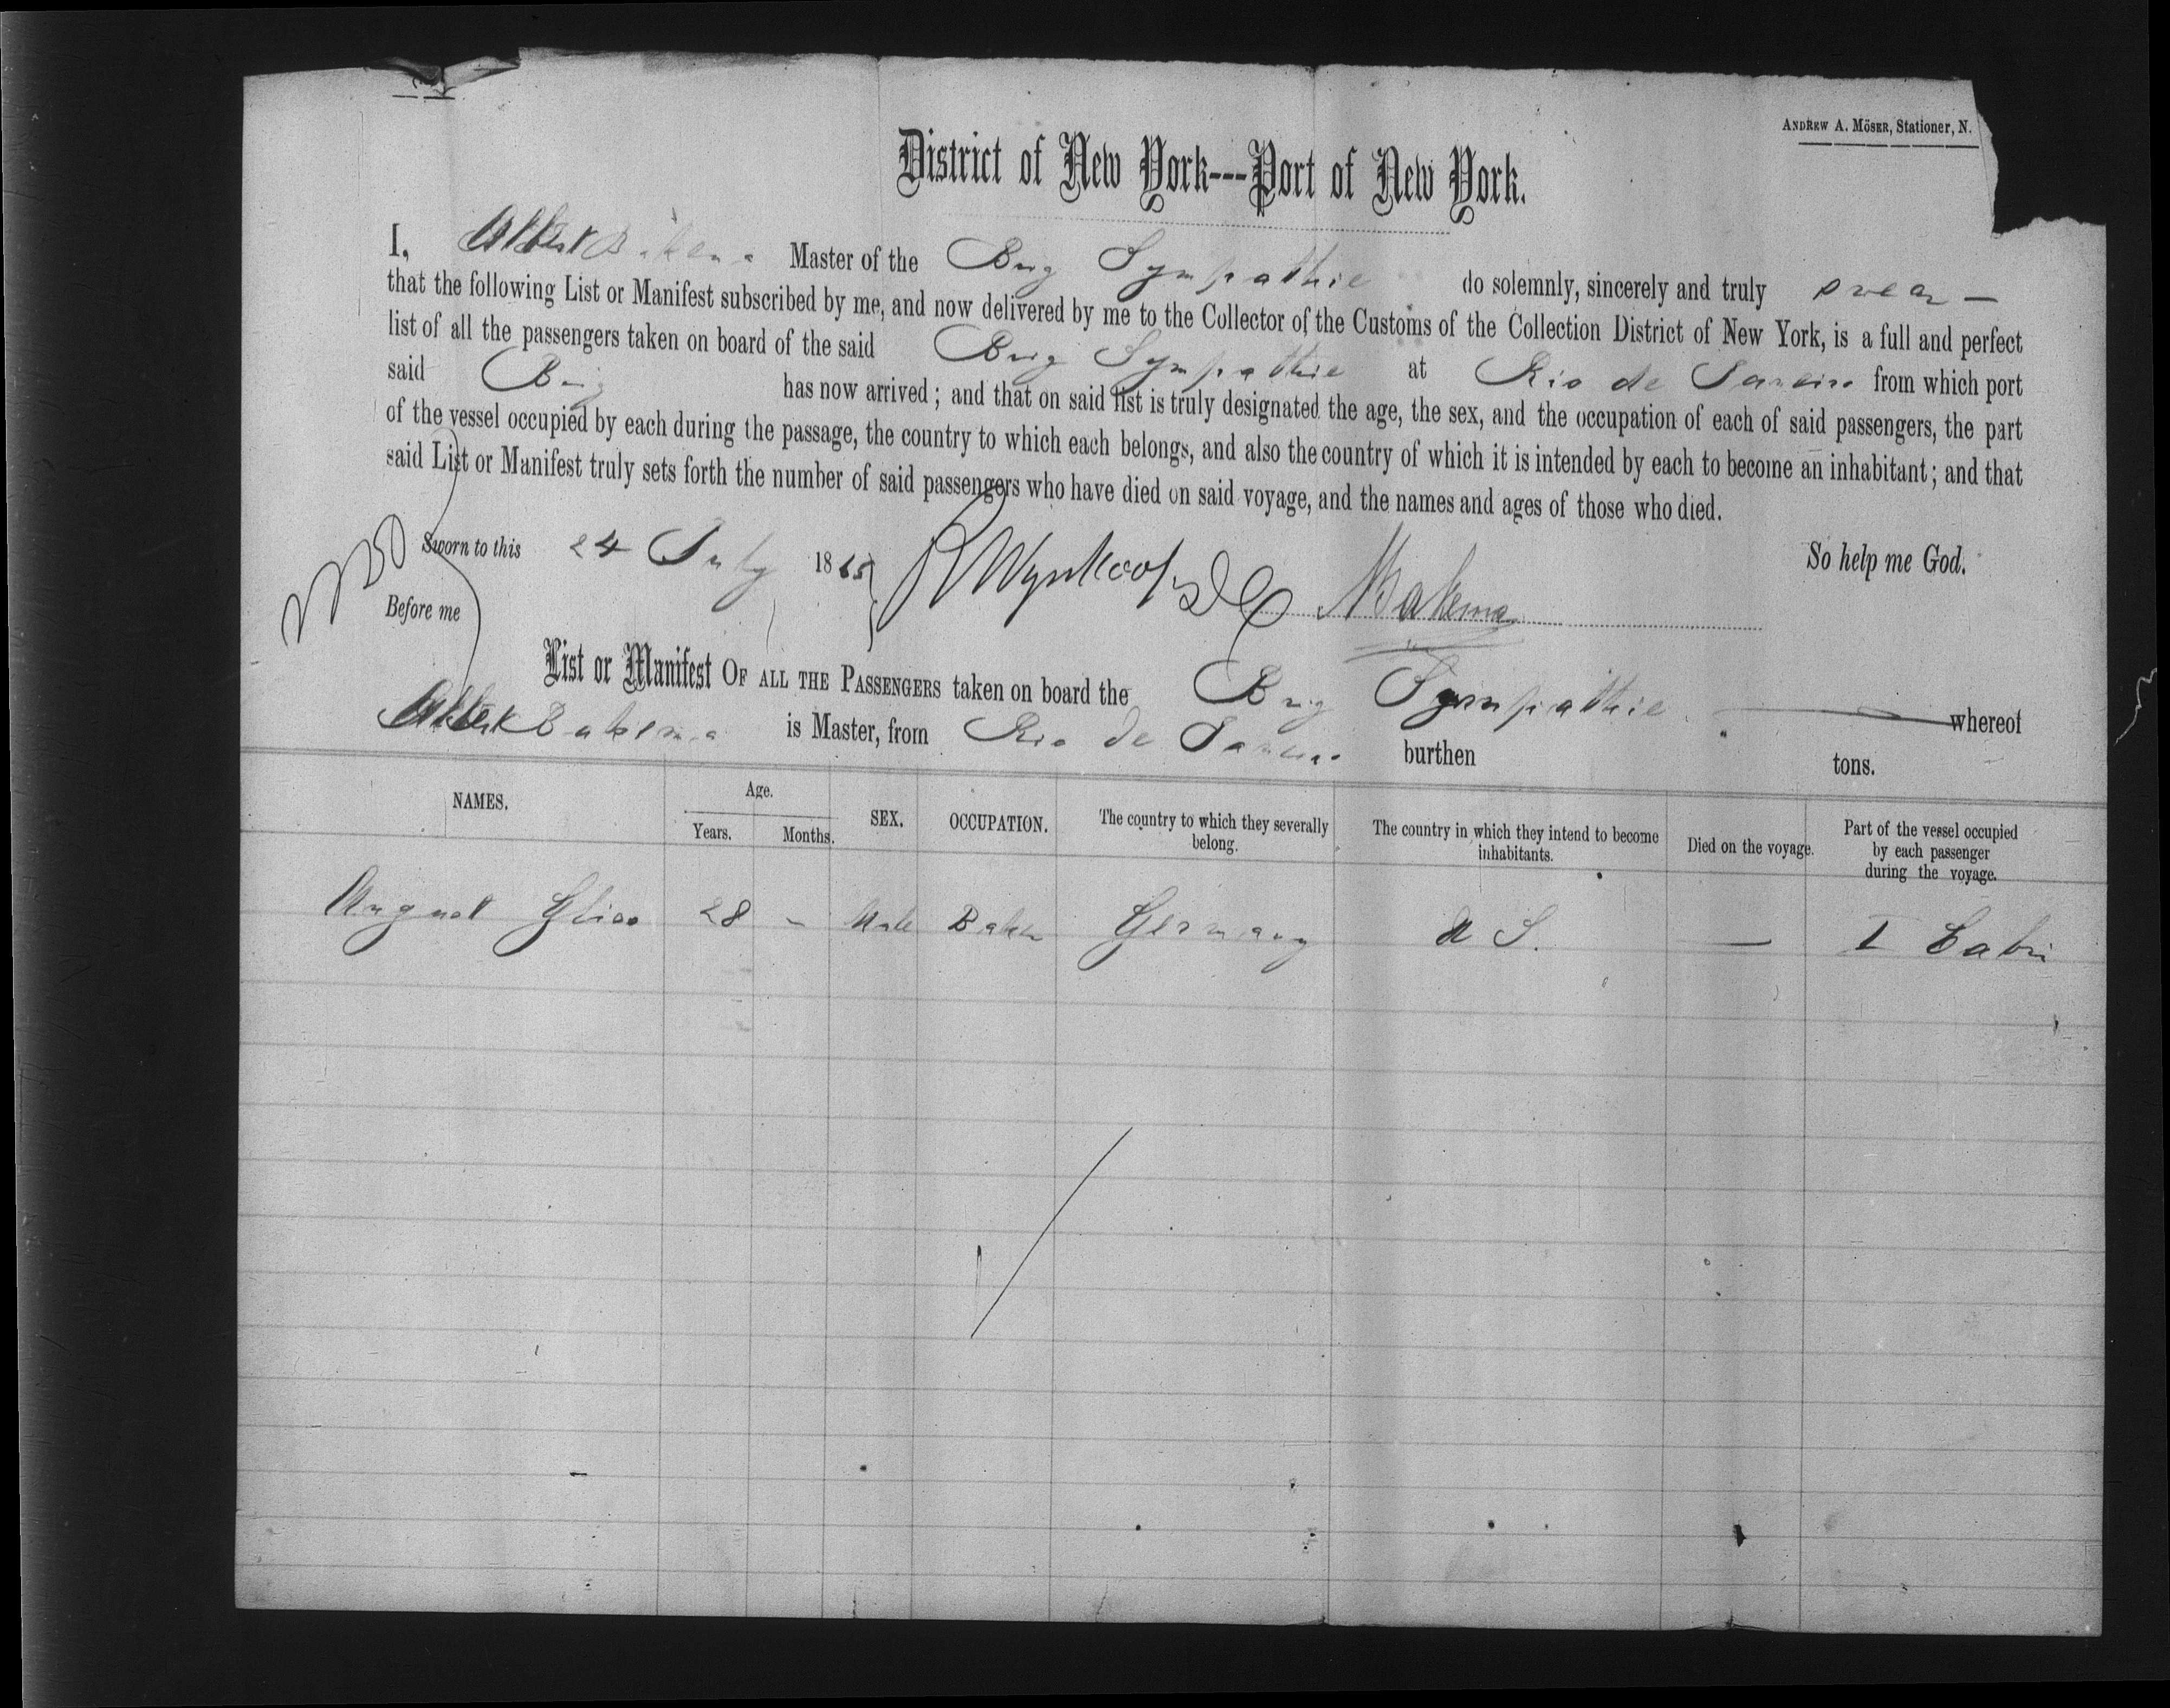 ANDREW A. MÖSER, Stationer, N.
District of New York---Port of New York.
I, Albert Bakema Master of the Brig Sympathie do solemnly, sincerely and truly swear —
that the following List or Manifest subscribed by me, and now delivered by me to the Collector of the Customs of the Collection District of New York, is a full and perfect
list of all the passengers taken on board of the said Brig Sympathie at Rio de Janeiro from which port
said Brig has now arrived ; and that on said list is truly designated the age, the sex, and the occupation of each of said passengers, the part
of the vessel occupied by each during the passage, the country to which each belongs, and also the country of which it is intended by each to become an inhabitant ; and that
said List or Manifest truly sets forth the number of said passengers who have died on said voyage, and the names and ages of those who died.
So help me God.
Sworn to this 24 July 1865
Before me R Wynkoop A Bakema
List or Manifest OF ALL THE PASSENGERS taken on board the Brig Sympathie whereof
Albert Bakema is Master, from Rio de Janeiro burthen tons.
NAMES. Age. Years. Months. SEX. OCCUPATION. The country to which they severally belong. The country in which they intend to become inhabitants. Died on the voyage. Part of the vessel occupied by each passenger during the voyage.
August 28 – Male Baker Germany U S. — I Cabin